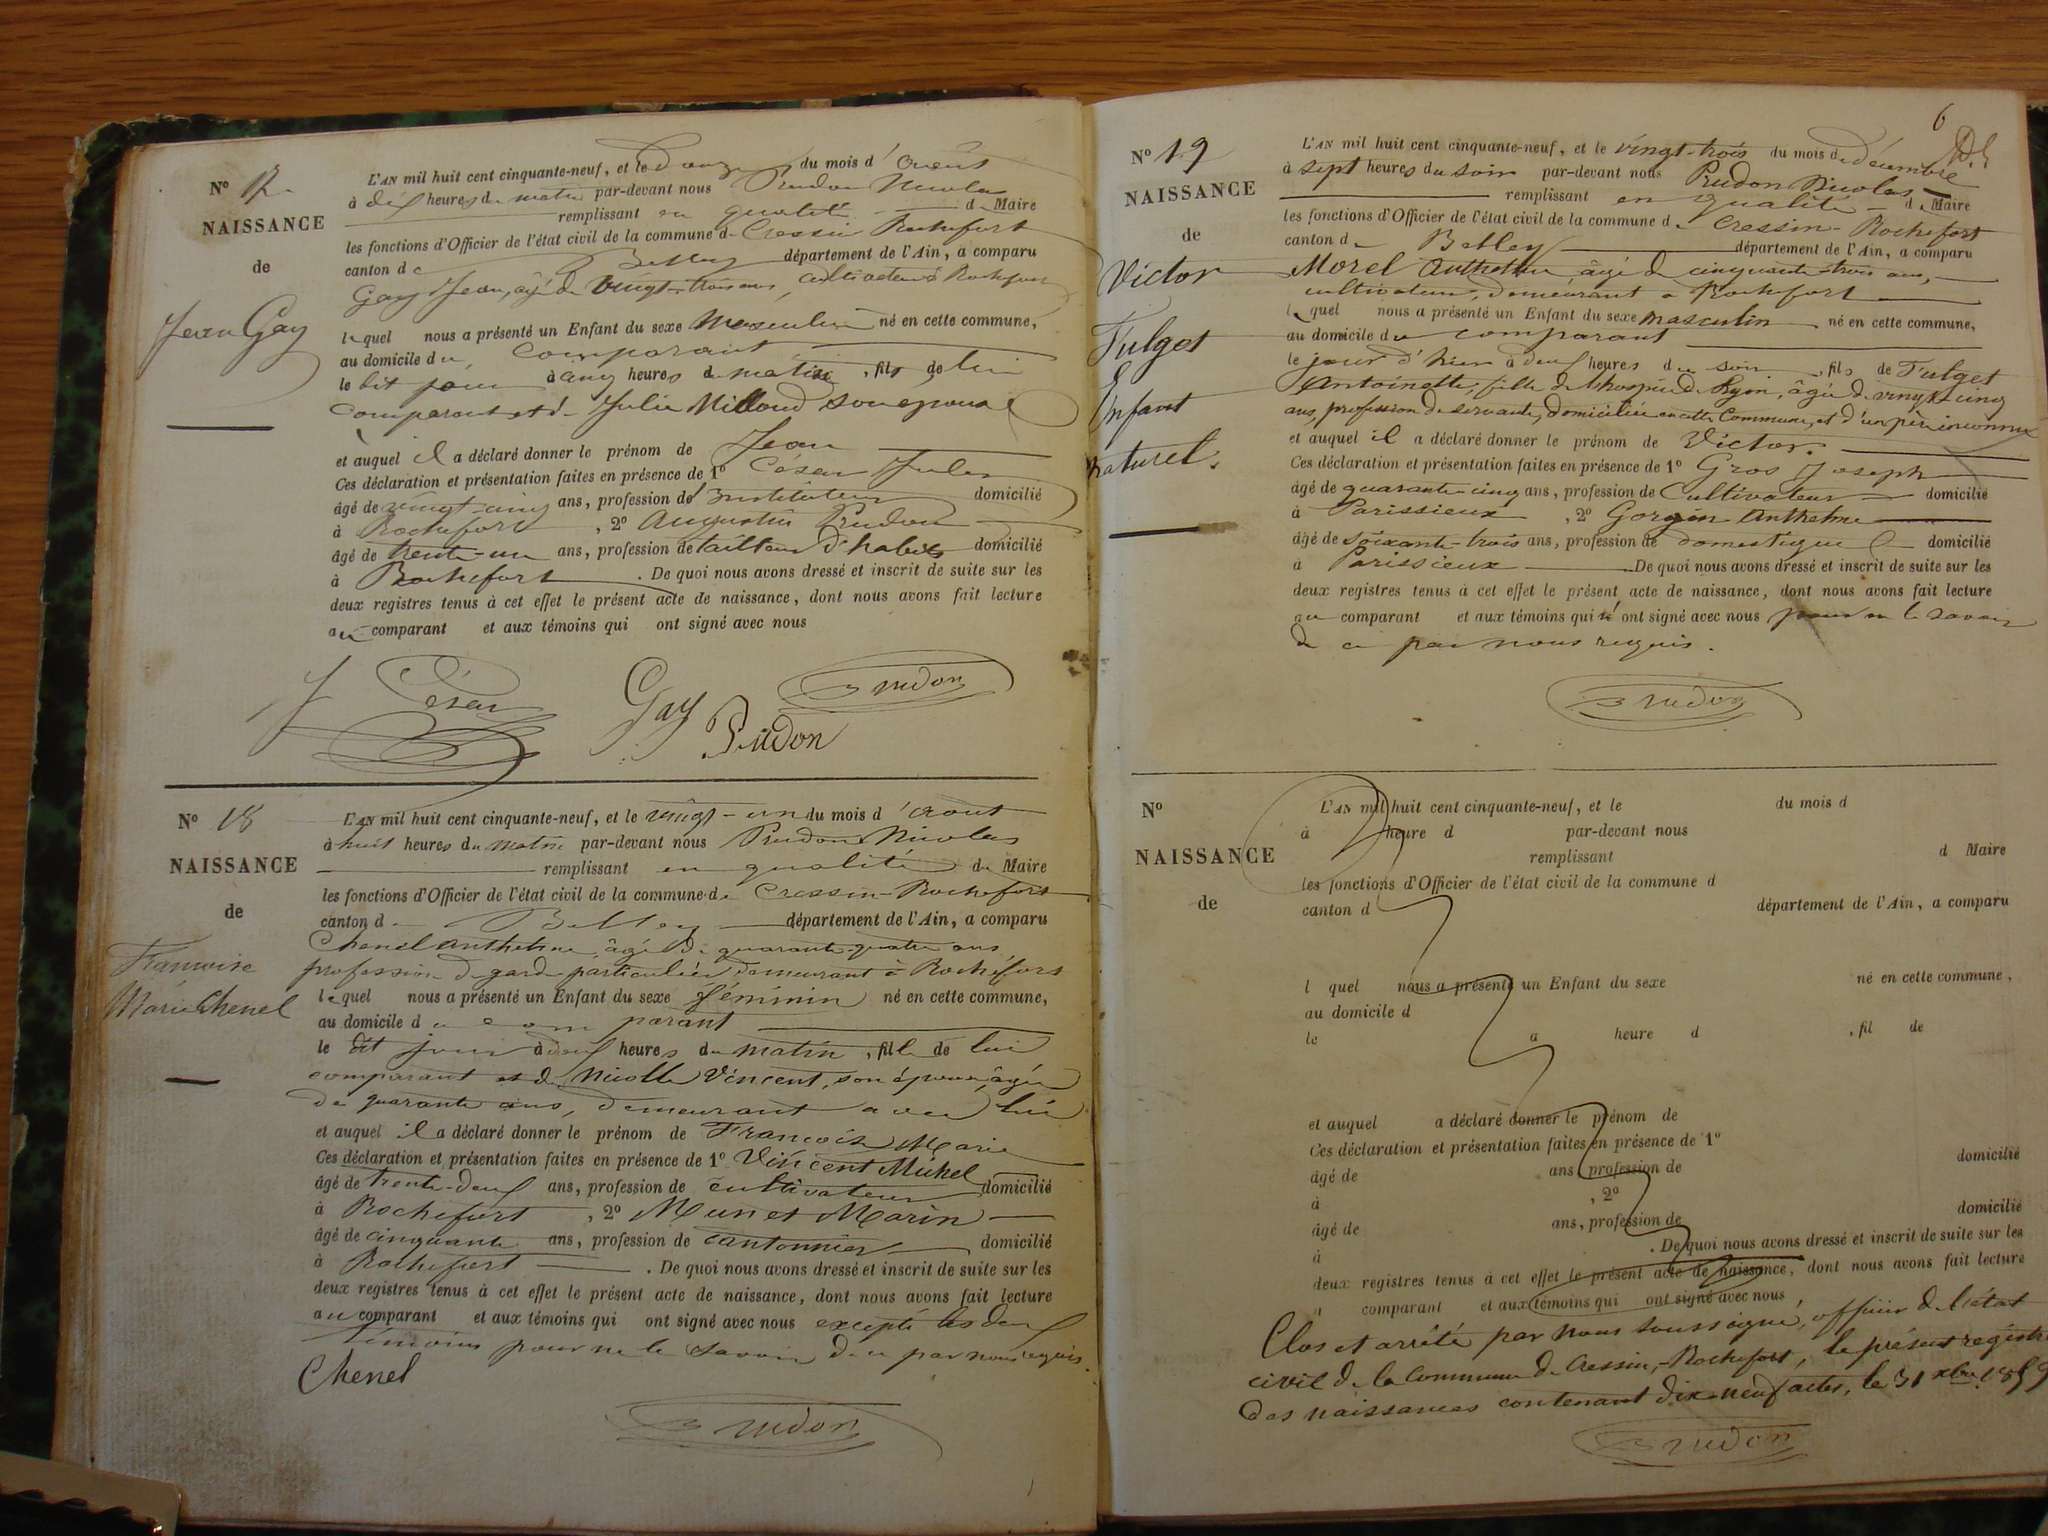 N°
NAISSANCE
de
Jean Gay
L'AN mil huit cent cinquante-neuf, et le douze du mois d'août
à dix heures du matin par-devant nous Prudon Nicolas
remplissant en qualité de Maire
les fonctions d'Officier de l'état civil de la commune de Cressin Rochefort
canton de Belley département de l'Ain, a comparu
Gay Jean, âgé de vingt-trois ans, cultivateur à Rochefort
lequel nous a présenté un Enfant du sexe Masculin né en cette commune,
au domicile du comparant
le dit jour à cinq heures du matin, fils de lui
comparant et de Julie Milloud son épouse
et auquel il a déclaré donner le prénom de Jean
Ces déclaration et présentation faites en présence de 1° César Jules
âgé de vingt-cinq ans, profession d'Instituteur domicilié
à Rochefort, 2° Augustin Prudon
âgé de trente-un ans, profession de tailleur d'habits domicilié
à Rochefort. De quoi nous avons dressé et inscrit de suite sur les
deux registres tenus à cet effet le présent acte de naissance, dont nous avons fait lecture
au comparant et aux témoins qui ont signé avec nous
J César Gay Prudon
Prudon
N° 18
NAISSANCE
de
Françoise
Marie Chenel
L'AN mil huit cent cinquante-neuf, et le vingt-un du mois d'août
à huit heures du matin par-devant nous Prudon Nicolas
remplissant en qualité de Maire
les fonctions d'Officier de l'état civil de la commune de Cressin-Rochefort
canton de Belley département de l'Ain, a comparu
Chenel Anthelme, âgé de quarante-quatre ans
profession de garde particulier demeurant à Rochefort
lequel nous a présenté un Enfant du sexe féminin né en cette commune,
au domicile du comparant
le dit jour à deux heures du matin, fille de lui
comparant et de Nicolle Vincent, son épouse, âgée
de quarante ans, demeurant avec lui
et auquel il a déclaré donner le prénom de Françoise Marie
Ces déclaration et présentation faites en présence de 1° Vincent Michel
âgé de trente-deux ans, profession de cultivateur domicilié
à Rochefort, 2° Munet Marin
âgé de cinquante ans, profession de cantonnier domicilié
à Rochefort. De quoi nous avons dressé et inscrit de suite sur les
deux registres tenus à cet effet le présent acte de naissance, dont nous avons fait lecture
au comparant et aux témoins qui ont signé avec nous excepté les deux
témoins pour ne le savoir de ce par nous requis.
Chenel
Prudon
6
N° 19
NAISSANCE
de
Victor
Fulget
Enfant
naturel.
L'AN mil huit cent cinquante-neuf, et le vingt-trois du mois de décembre
à sept heures du soir par-devant nous Prudon Nicolas
remplissant en qualité de Maire
les fonctions d'Officier de l'état civil de la commune de Cressin-Rochefort
canton de Belley département de l'Ain, a comparu
Morel Anthelme âgé de cinquante-trois ans,
cultivateur, demeurant à Rochefort
lequel nous a présenté un Enfant du sexe masculin né en cette commune,
au domicile du comparant
le jour d'hier à deux heures du soir, fils de Fulget
Antoinette, fille de l'hospice de Lyon, âgée de vingt-cinq
ans, profession de servante, domiciliée en cette Commune, et d'un père inconnu
et auquel il a déclaré donner le prénom de Victor.
Ces déclaration et présentation faites en présence de 1° Gros Joseph
âgé de quarante-cinq ans, profession de Cultivateur domicilié
à Parissieux, 2° Gorgin Anthelme
âgé de soixante-trois ans, profession de domestique domicilié
à Parissieux De quoi nous avons dressé et inscrit de suite sur les
deux registres tenus à cet effet le présent acte de naissance, dont nous avons fait lecture
au comparant et aux témoins qui n'ont signé avec nous pour ne le savoir
de ce par nous requis.
Prudon
N°
NAISSANCE
de
L'AN mil huit cent cinquante-neuf, et le du mois d
à heure d par-devant nous
remplissant d Maire
les fonctions d'Officier de l'état civil de la commune d
canton d département de l'Ain, a comparu
l quel nous a présenté un Enfant du sexe né en cette commune,
au domicile d
le a heure d , fil de
et auquel a déclaré donner le prénom de
Ces déclaration et présentation faites en présence de 1°
âgé de ans, profession de domicilié
à , 2°
âgé de ans, profession de domicilié
à . De quoi nous avons dressé et inscrit de suite sur les
deux registres tenus à cet effet le présent acte de naissance, dont nous avons fait lecture
a comparant et aux témoins qui ont signé avec nous
Clos et arrêté par nous soussigné, officier de l'état
civil de la Commune de Cressin-Rochefort, le présent registre
des naissances contenant dix-neuf actes, le 31 xbre 1859
Prudon